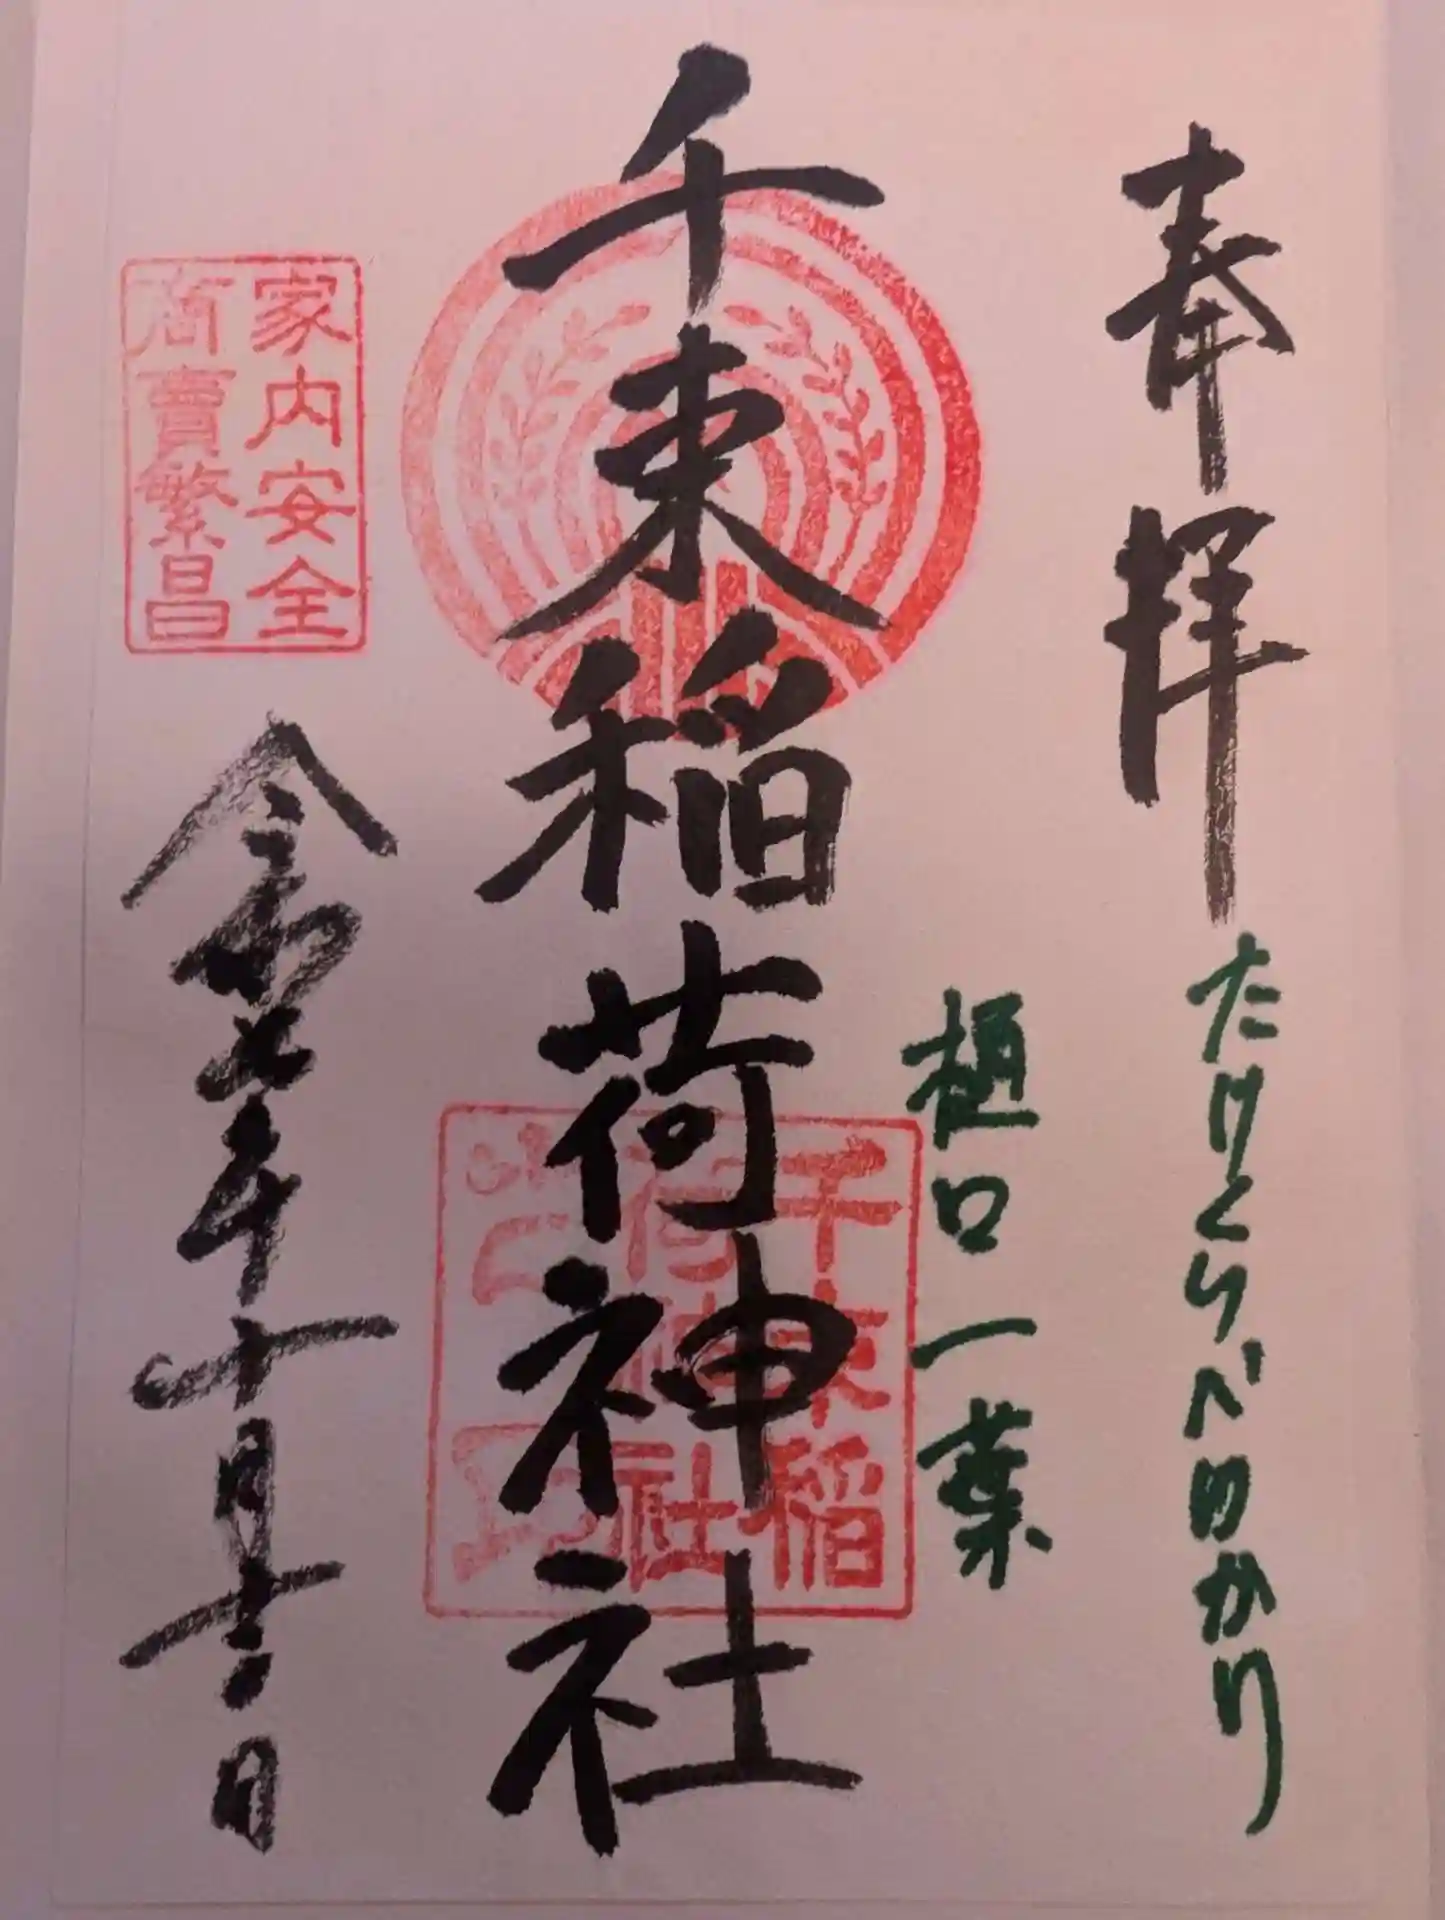 奉拝
たけくらべゆかり
樋口一葉
千束稲荷神社
千束稲
荷神社
家内安全
商賣繁昌
令和七年十月